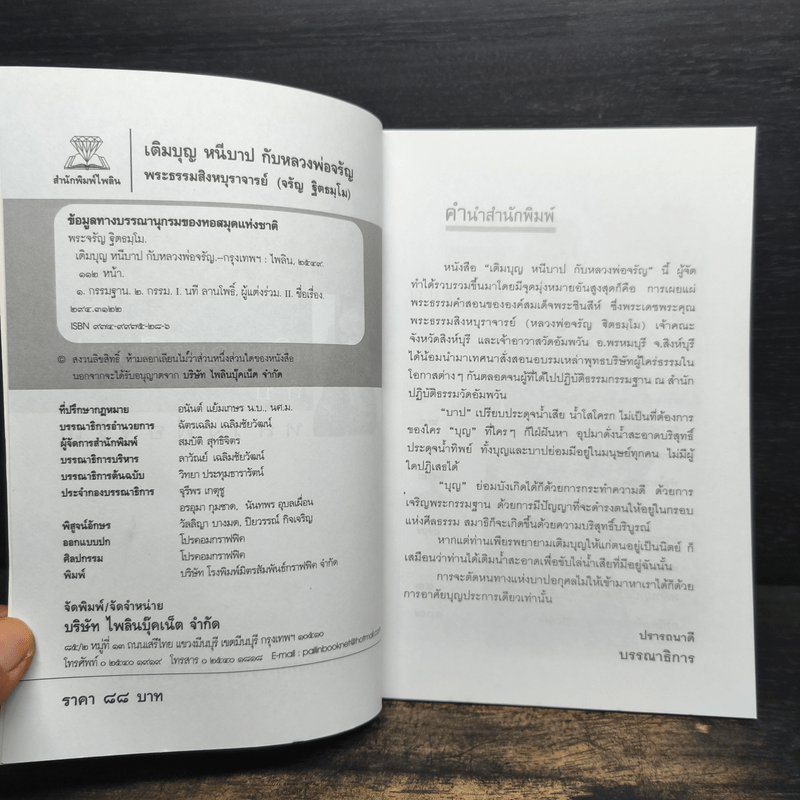 สำนักพิมพ์ไพลิน
เติมบุญ หนีบาป กับหลวงพ่อจรัญ
พระธรรมสิงหบุราจารย์ (จรัญ ฐิตธมฺโม)
ข้อมูลทางบรรณานุกรมของหอสมุดแห่งชาติ
พระจรัญ ฐิตธมฺโม.
เติมบุญ หนีบาป กับหลวงพ่อจรัญ.--กรุงเทพฯ : ไพลิน, ๒๕๔๙.
๑๑๒ หน้า.
๑. กรรมฐาน. ๒. กรรม. I. นที ลานโพธิ์, ผู้แต่งร่วม. II. ชื่อเรื่อง.
๒๙๔.๓๑๒๒
ISBN ๙๗๔-๙๙๗๕-๒๘-๖
© สงวนลิขสิทธิ์ ห้ามลอกเลียนไม่ว่าส่วนหนึ่งส่วนใดของหนังสือ
นอกจากจะได้รับอนุญาตจาก บริษัท ไพลินบุ๊คเน็ต จำกัด
ที่ปรึกษากฎหมาย อนันต์ แย้มเกษร น.บ., นศ.ม.
บรรณาธิการอำนวยการ ฉัตรเฉลิม เฉลิมชัยวัฒน์
ผู้จัดการสำนักพิมพ์ สมบัติ สุทธิจิตร
บรรณาธิการบริหาร ลาวัณย์ เฉลิมชัยวัฒน์
บรรณาธิการต้นฉบับ วิทยา ประทุมธารารัตน์
ประจำกองบรรณาธิการ จุรีพร เกตุชู
อรอุมา กุมชาด, นันทพร อุบลเผื่อน
พิสูจน์อักษร วัลลิญา บางมด, ปิยวรรณ์ กิจเจริญ
ออกแบบปก โปรคอมกราฟฟิค
ศิลปกรรม โปรคอมกราฟฟิค
พิมพ์ บริษัท โรงพิมพ์มิตรสัมพันธ์กราฟฟิค จำกัด
จัดพิมพ์/จัดจำหน่าย
บริษัท ไพลินบุ๊คเน็ต จำกัด
๘๕/๒ หมู่ที่ ๑๓ ถนนเสรีไทย แขวงมีนบุรี เขตมีนบุรี กรุงเทพฯ ๑๐๕๑๐
โทรศัพท์ ๐ ๒๕๔๐ ๑๙๑๙ โทรสาร ๐ ๒๕๔๐ ๑๘๑๘ E-mail : pailinbooknet@hotmail.
ราคา ๘๘ บาท
คำนำสำนักพิมพ์
หนังสือ "เติมบุญ หนีบาป กับหลวงพ่อจรัญ" นี้ ผู้จัด
ทำได้รวบรวมขึ้นมาโดยมีจุดมุ่งหมายอันสูงสุดก็คือ การเผยแผ่
พระธรรมคำสอนขององค์สมเด็จพระชินสีห์ ซึ่งพระเดชพระคุณ
พระธรรมสิงหบุราจารย์ (หลวงพ่อจรัญ ฐิตธมฺโม) เจ้าคณะ
จังหวัดสิงห์บุรี และเจ้าอาวาสวัดอัมพวัน อ.พรหมบุรี จ.สิงห์บุรี
ได้น้อมนำมาเทศนาสั่งสอนอบรมเหล่าพุทธบริษัทผู้ใคร่ธรรมใน
โอกาสต่างๆ กันตลอดจนผู้ที่ได้ไปปฏิบัติธรรมกรรมฐาน ณ สำนัก
ปฏิบัติธรรมวัดอัมพวัน
"บาป" เปรียบประดุจน้ำเสีย น้ำโสโครก ไม่เป็นที่ต้องการ
ของใคร "บุญ" ที่ใครๆ ก็ใฝ่ฝันหา อุปมาดั่งน้ำสะอาดบริสุทธิ์
ประดุจน้ำทิพย์ ทั้งบุญและบาปย่อมมีอยู่ในมนุษย์ทุกคน ไม่มีผู้
ใดปฏิเสธได้
"บุญ" ย่อมบังเกิดได้ก็ด้วยการกระทำความดี ด้วยการ
เจริญพระกรรมฐาน ด้วยการมีปัญญาที่จะดำรงตนให้อยู่ในกรอบ
แห่งศีลธรรม สมาธิก็จะเกิดขึ้นด้วยความบริสุทธิ์บริบูรณ์
หากแต่ท่านเพียรพยายามเติมบุญให้แก่ตนอยู่เป็นนิตย์ ก็
เสมือนว่าท่านได้เติมน้ำสะอาดเพื่อขับไล่น้ำเสียที่มีอยู่ฉันนั้น
การจะตัดหนทางแห่งบาปอกุศลไม่ให้เข้ามาหาเราได้ก็ด้วย
การอาศัยบุญประการเดียวเท่านั้น
ปรารถนาดี
บรรณาธิการ